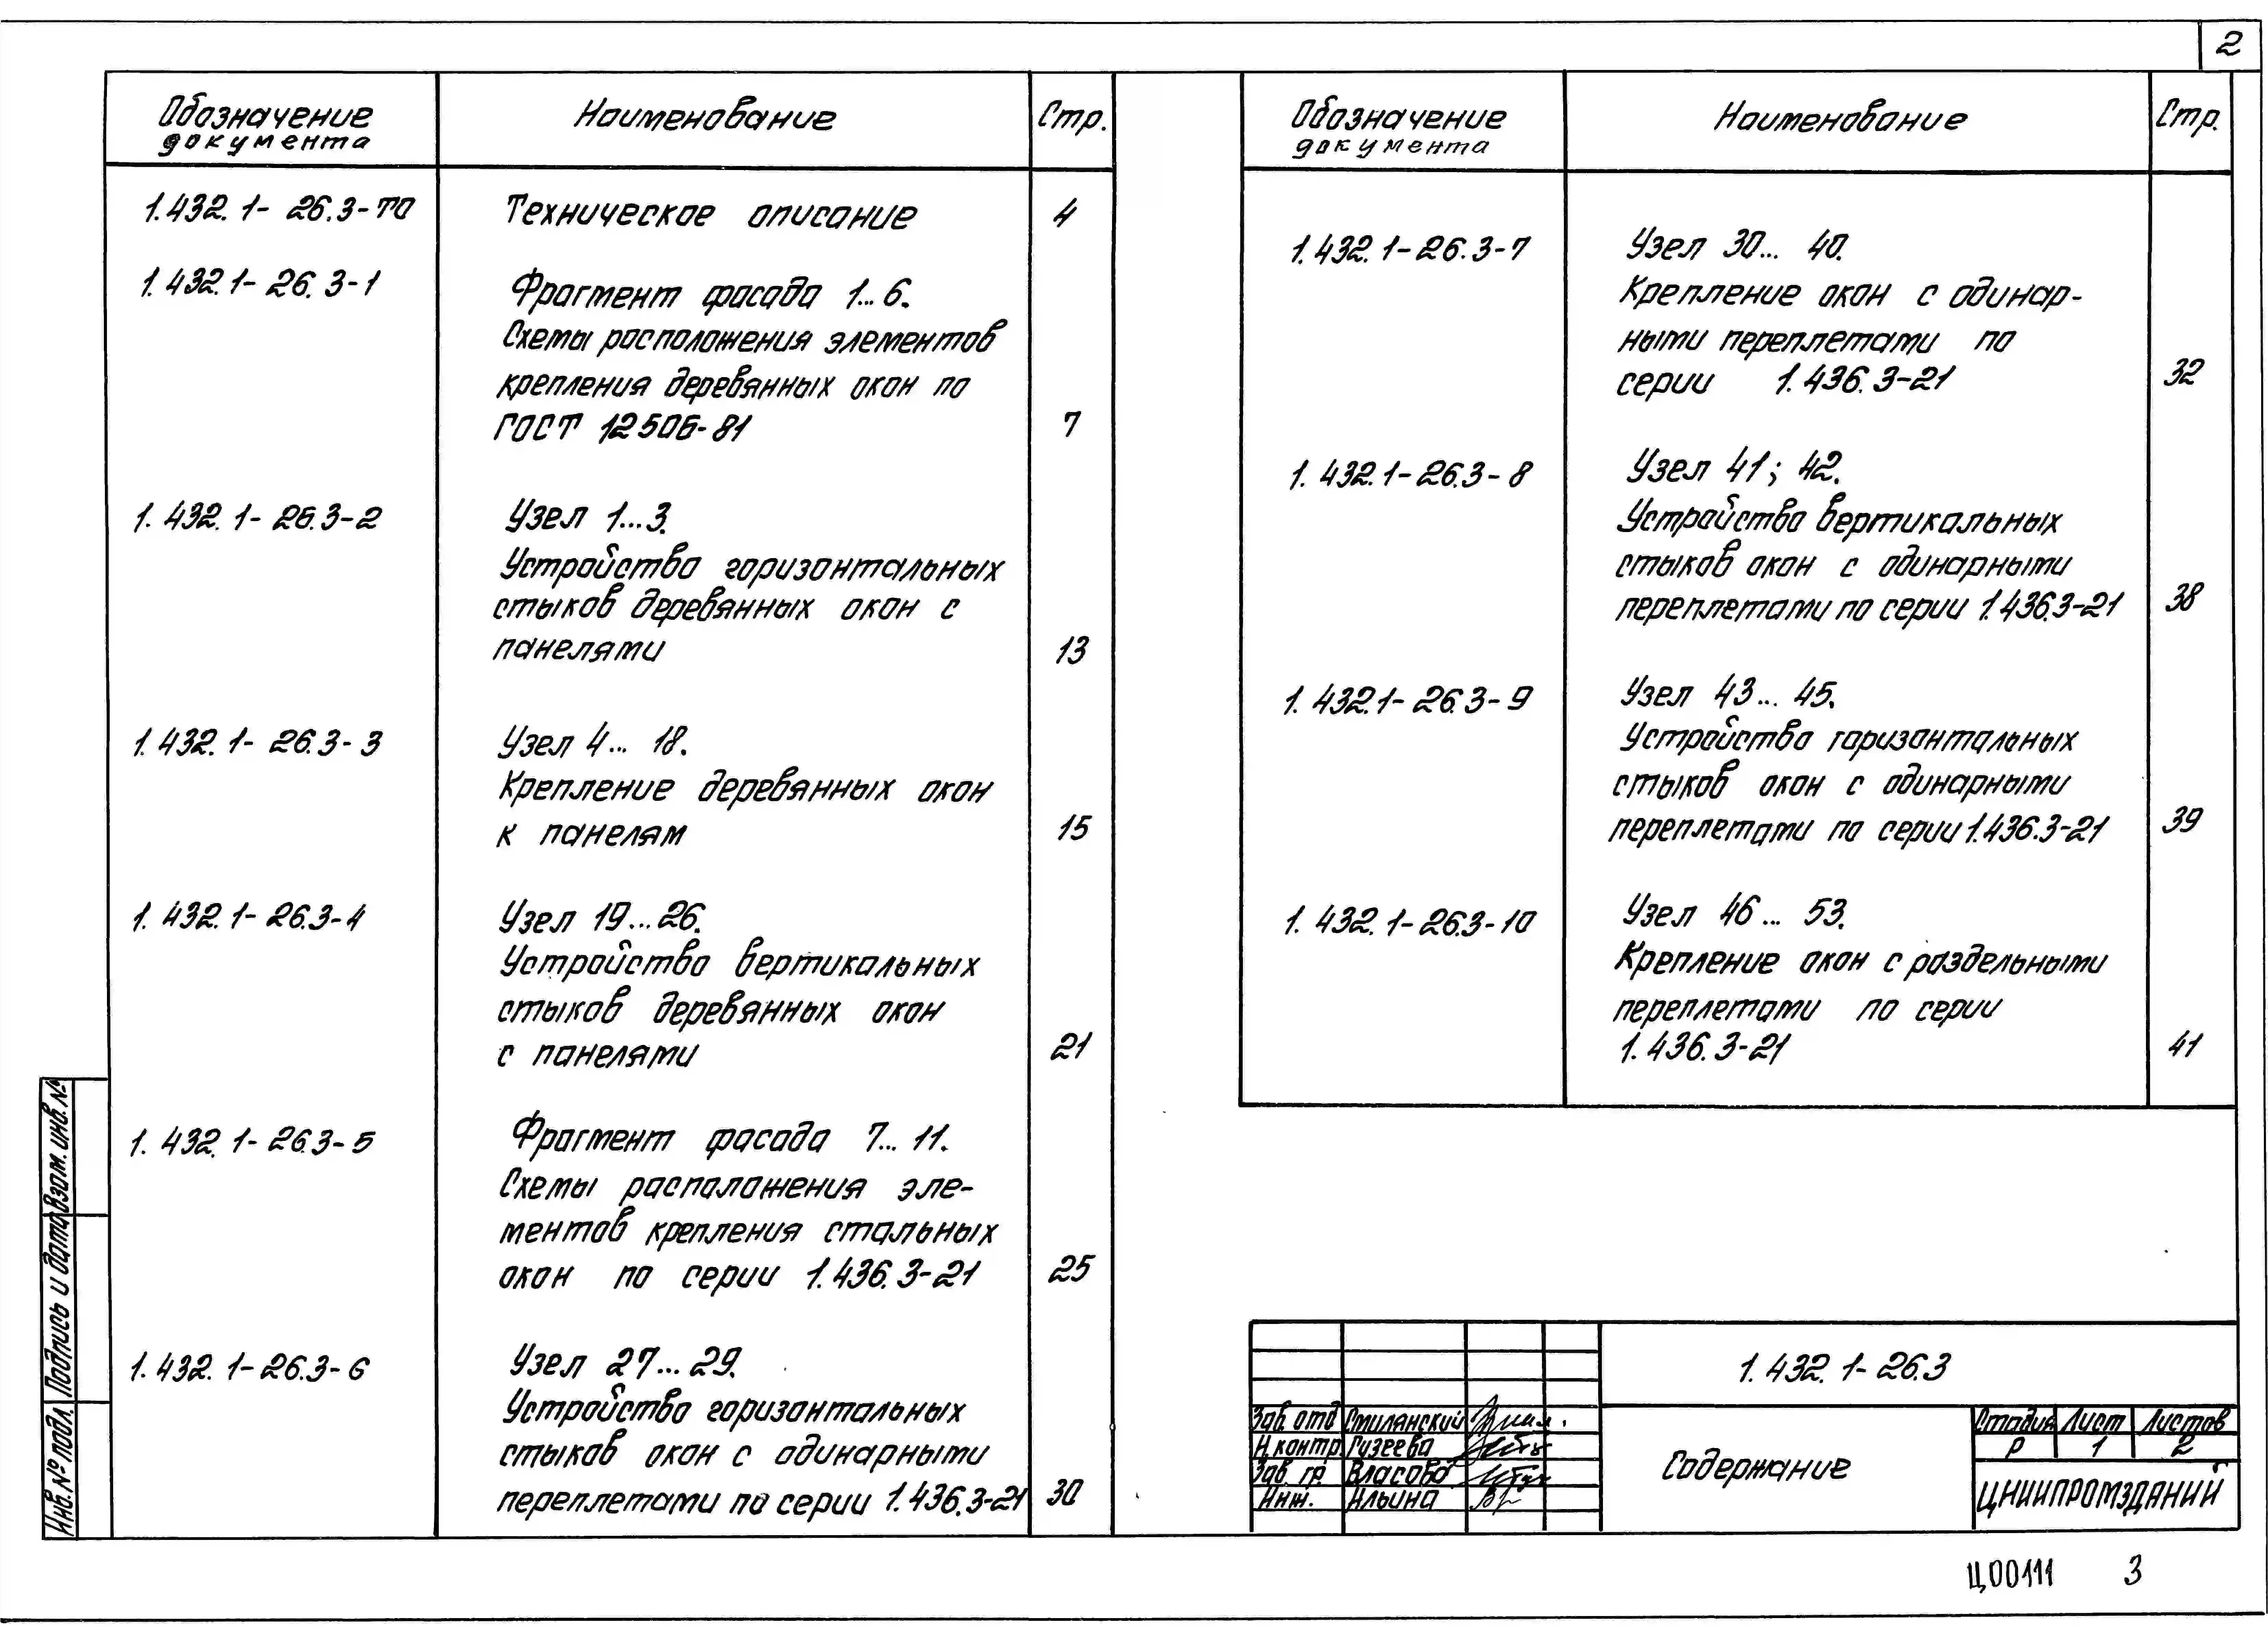 2
Обозначение документа Наименование Стр.
1.432.1-26.3-ТО Техническое описание 4
1.432.1-26.3-1 Фрагмент фасада 1...6.
Схемы расположения элементов
крепления деревянных окон по
ГОСТ 12506-81 7
1.432.1-26.3-2 Узел 1...3.
Устройство горизонтальных
стыков деревянных окон с
панелями 13
1.432.1-26.3-3 Узел 4...18.
Крепление деревянных окон
к панелям 15
1.432.1-26.3-4 Узел 19...26.
Устройство вертикальных
стыков деревянных окон
с панелями 21
1.432.1-26.3-5 Фрагмент фасада 7...11.
Схемы расположения эле-
ментов крепления стальных
окон по серии 1.436.3-21 25
1.432.1-26.3-6 Узел 27...29.
Устройство горизонтальных
стыков окон с одинарными
переплетами по серии 1.436.3-21 30
Обозначение документа Наименование Стр.
1.432.1-26.3-7 Узел 30...40.
Крепление окон с одинар-
ными переплетами по
серии 1.436.3-21 32
1.432.1-26.3-8 Узел 41; 42.
Устройство вертикальных
стыков окон с одинарными
переплетами по серии 1.436.3-21 38
1.432.1-26.3-9 Узел 43...45.
Устройство горизонтальных
стыков окон с одинарными
переплетами по серии 1.436.3-21 39
1.432.1-26.3-10 Узел 46...53.
Крепление окон с раздельными
переплетами по серии
1.436.3-21 41
Инв.№ подл. Подпись и дата Взам. инв.№
1.432.1-26.3
Зав. отд Смилянский
Н.контр. Гузеева
Зав. гр. Власова
Инж. Ильина
Содержание
Стадия Лист Листов
Р 1 2
ЦНИИПРОМЗДАНИЙ
Ц00111 3